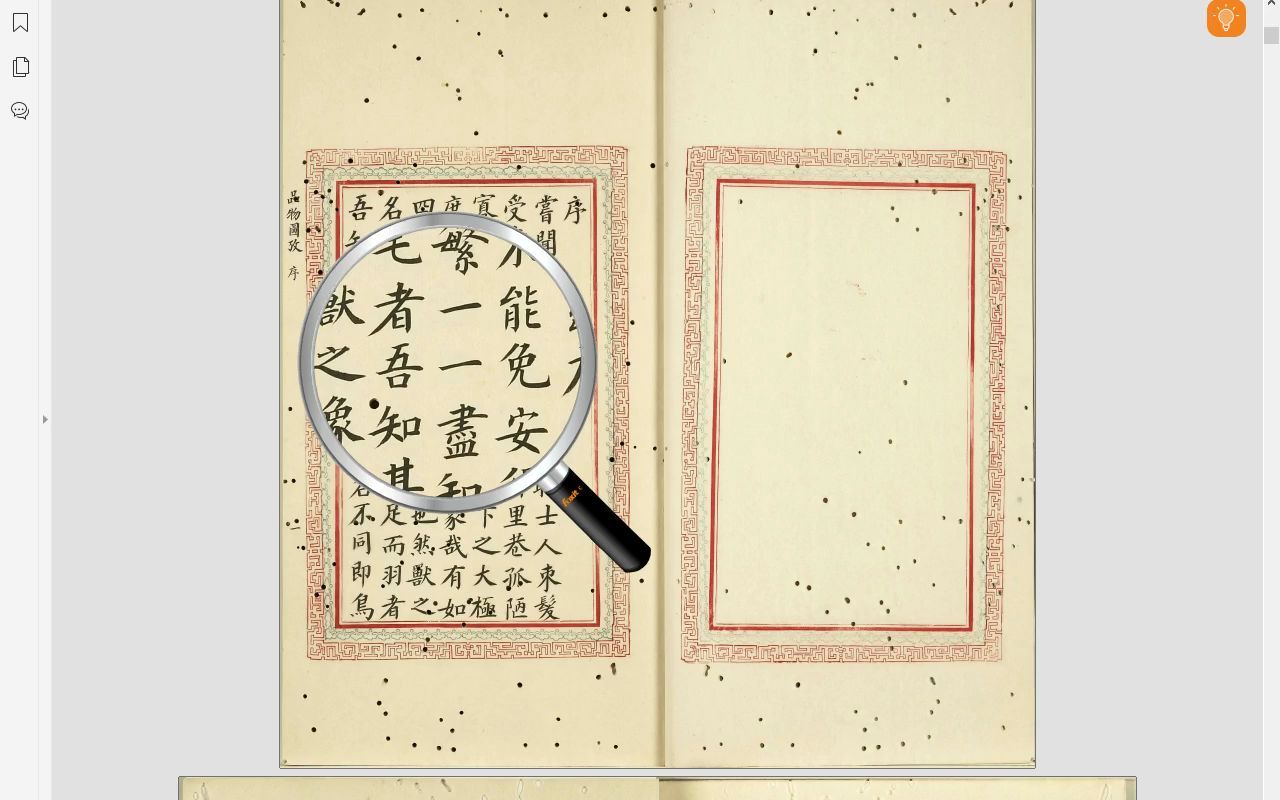 序
嘗聞
士人束髮
受
里巷孤陋
寡
下之大極
庶
哉有如
四
也然獸之
名
足而羽者
吾
名不同即鳥
能免安
繁一一盡知
毛者吾知其
獸之象
品物圖攷 序 一